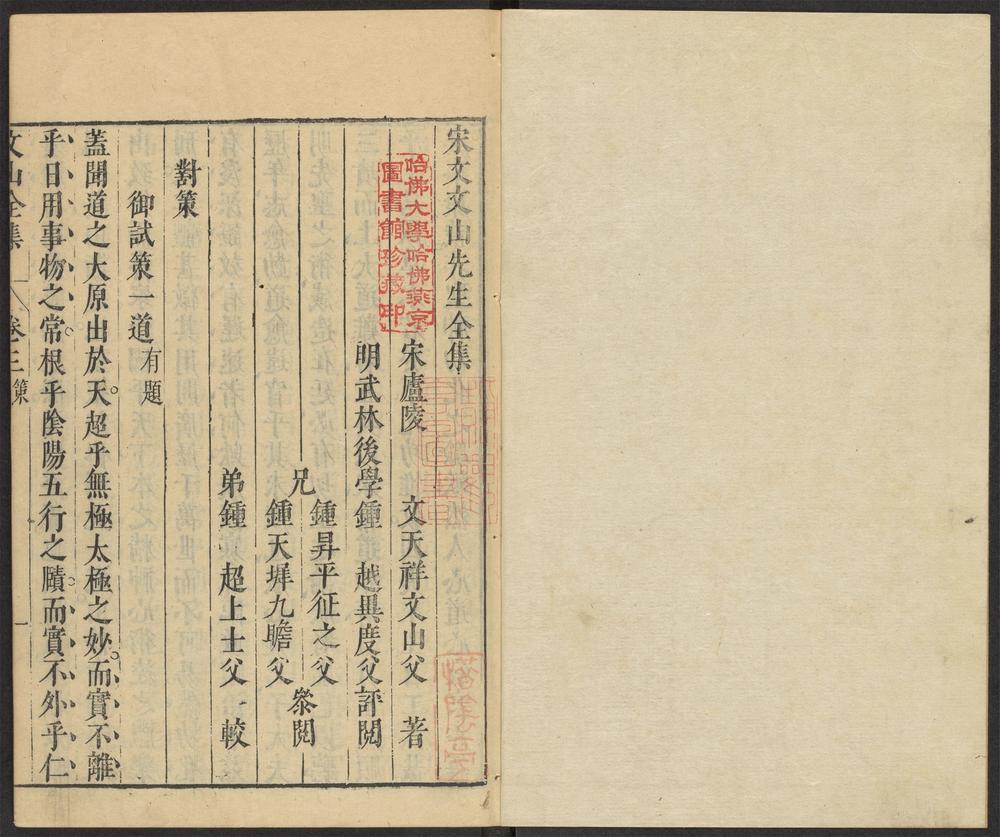 宋文文山先生全集
宋廬陵　文天祥文山父　著
明武林後學鍾　越異度父評閱
兄　鍾昇平征之父
鍾天墀九瞻父　叅閱
弟鍾　超上士父　較
對策
御試策一道有題
蓋聞道之大原出於天。超乎無極太極之妙。而實不離
乎日用事物之常。根乎陰陽五行之賾。而實不外乎仁
文山全集　卷三　策　一
哈佛大學哈佛燕京
圖書館珍藏印